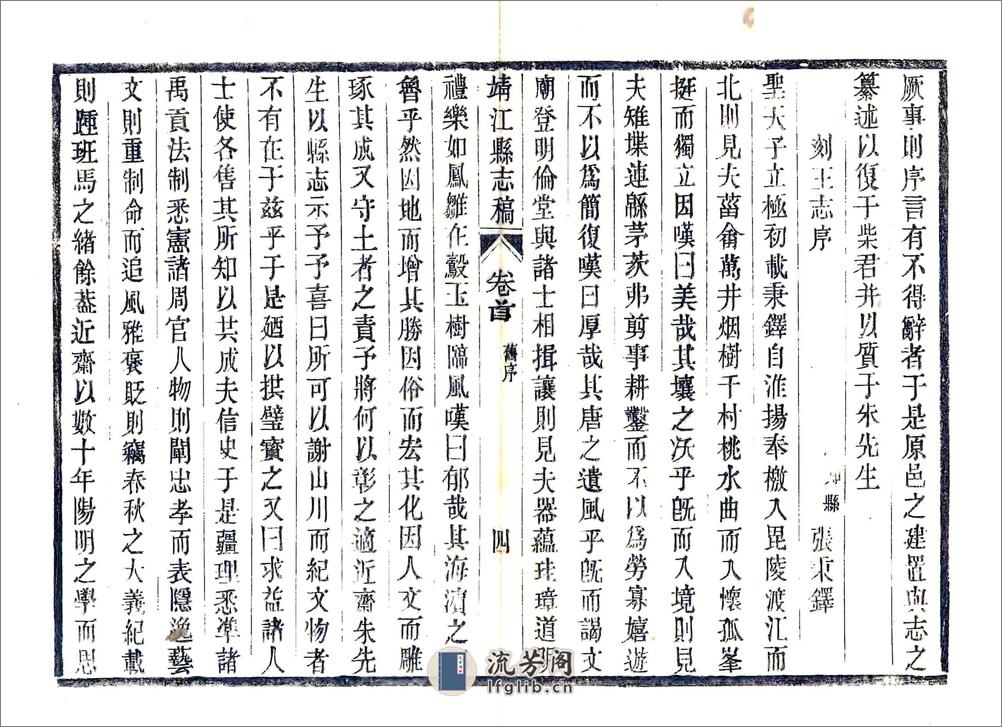 厥事則序言有不得辭者于是原邑之建置與志之
纂述以復于柴君并以質于朱先生
刻王志序 縣 張秉鐸
聖天子立極初載秉鐸自淮揚奉檄入毘陵渡江而
北則見夫菑畬萬井烟樹千村桃水曲而入懷孤峯
挺而獨立因嘆曰美哉其壤之沃乎旣而入境則見
夫雉堞連緜茅茨弗剪事耕鑿而不以爲勞寡嬉遊
而不以爲簡復嘆曰厚哉其唐之遺風乎旣而謁文
廟登明倫堂與諸士相揖讓則見夫器蘊珪璋道明
靖江縣志稿 卷首 舊序 四
禮樂如鳳雛在鷇玉樹臨風嘆曰郁哉其海濵之鄒
魯乎然因地而增其勝因俗而宏其化因人文而雕
琢其成又守土者之責予將何以彰之適近齋朱先
生以縣志示予予喜曰所可以謝山川而紀文物者
不有在于兹乎于是廼以拱璧寳之又曰求益諸人
士使各售其所知以共成夫信史于是疆理悉凖諸
禹貢法制悉憲諸周官人物則闡忠孝而表隱逸藝
文則重制命而追風雅褒貶則竊春秋之大義紀載
則踵班馬之緒餘葢近齋以數十年陽明之學而思
流芳阁
lfglib.cn